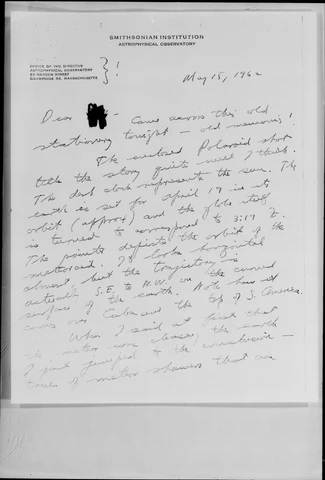 SMITHSONIAN INSTITUTION
ASTROPHYSICAL OBSERVATORY
OFFICE OF THE DIRECTOR
ASTROPHYSICAL OBSERVATORY
60 GARDEN STREET
CAMBRIDGE 38, MASSACHUSETTS
}!
May 15, 1962
Dear - Came across this old
stationery tonight - old memories!
The enclosed Polaroid shot
tells the story quite well I think.
The desk clock represents the sun. The
earth is set for April 19 in its
orbit (approx) and the globe itself
is turned to correspond to 3:19 Z.
The pointer depicts the orbit of the
meteoroid. It looks horizontal
almost, but the trajectory is
actually S.E. to N.W. on the curved
surface of the earth. Note how it
comes over Cuba and the top of S. America.
When I said at first that
the meteor was chasing the earth
I just jumped to the conclusion -
of meteor showers that are